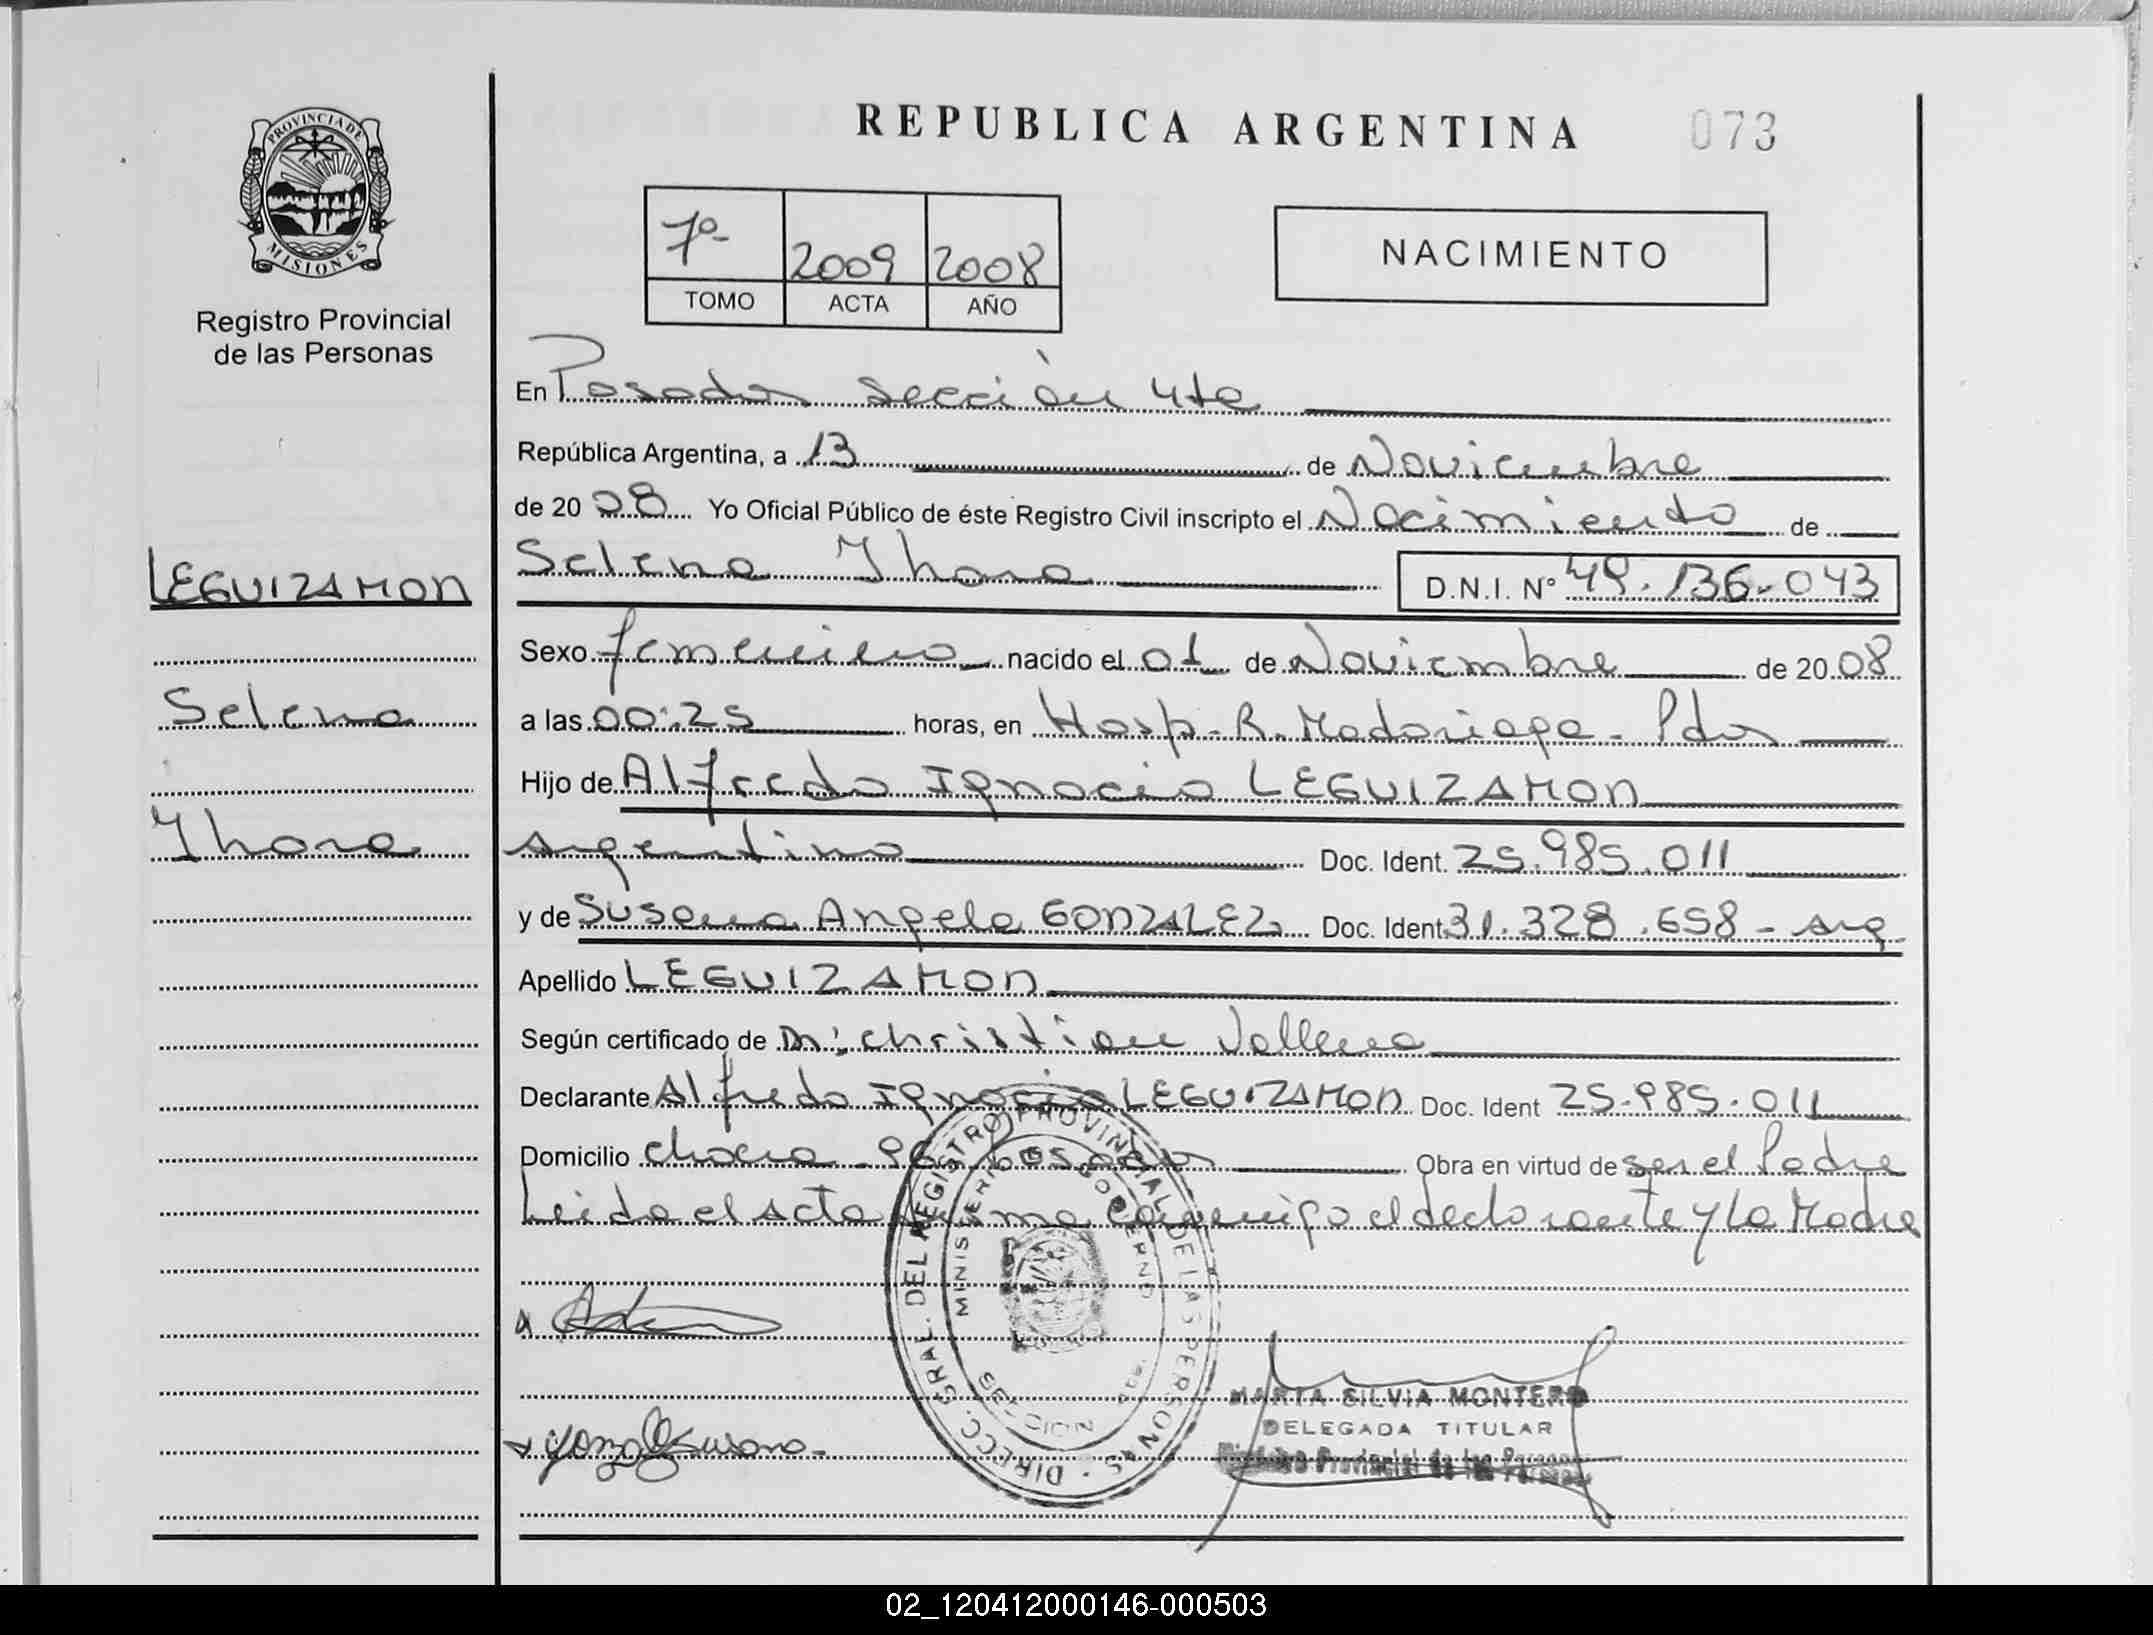 REPUBLICA ARGENTINA
073
PROVINCIA DE
MISIONES
Registro Provincial
de las Personas
7º
2009
2008
TOMO
ACTA
AÑO
NACIMIENTO
En Posadas Sección 4ta
República Argentina, a 13 de Noviembre
de 20 08 Yo Oficial Público de éste Registro Civil inscripto el Nacimiento de
LEGUIZAMON
Selena Ihara
D.N.I. Nº 49.136.043
Sexo femenino nacido el 01 de Noviembre de 20 08
Selena
a las 00:25 horas, en Hosp. R. Madariaga - Pdas
Hijo de Alfredo Ignacio LEGUIZAMON
Ihara
Argentino Doc. Ident. 25.985.011
y de Susana Angela GONZALEZ Doc. Ident 31.328.658 - Arg.
Apellido LEGUIZAMON
Según certificado de Christian
Declarante Alfredo Ignacio LEGUIZAMON Doc. Ident 25.985.011
Domicilio chacra Posadas Obra en virtud de ser el Padre
Leida el Acta firma conmigo el declarante y la Madre
DIRECC. GRAL. DEL REGISTRO PROVINCIAL DE LAS PERSONAS
MINISTERIO GOBIERNO
MARTA SILVIA MONTERO
DELEGADA TITULAR
Provincial de las Personas
Susana
02_120412000146-000503